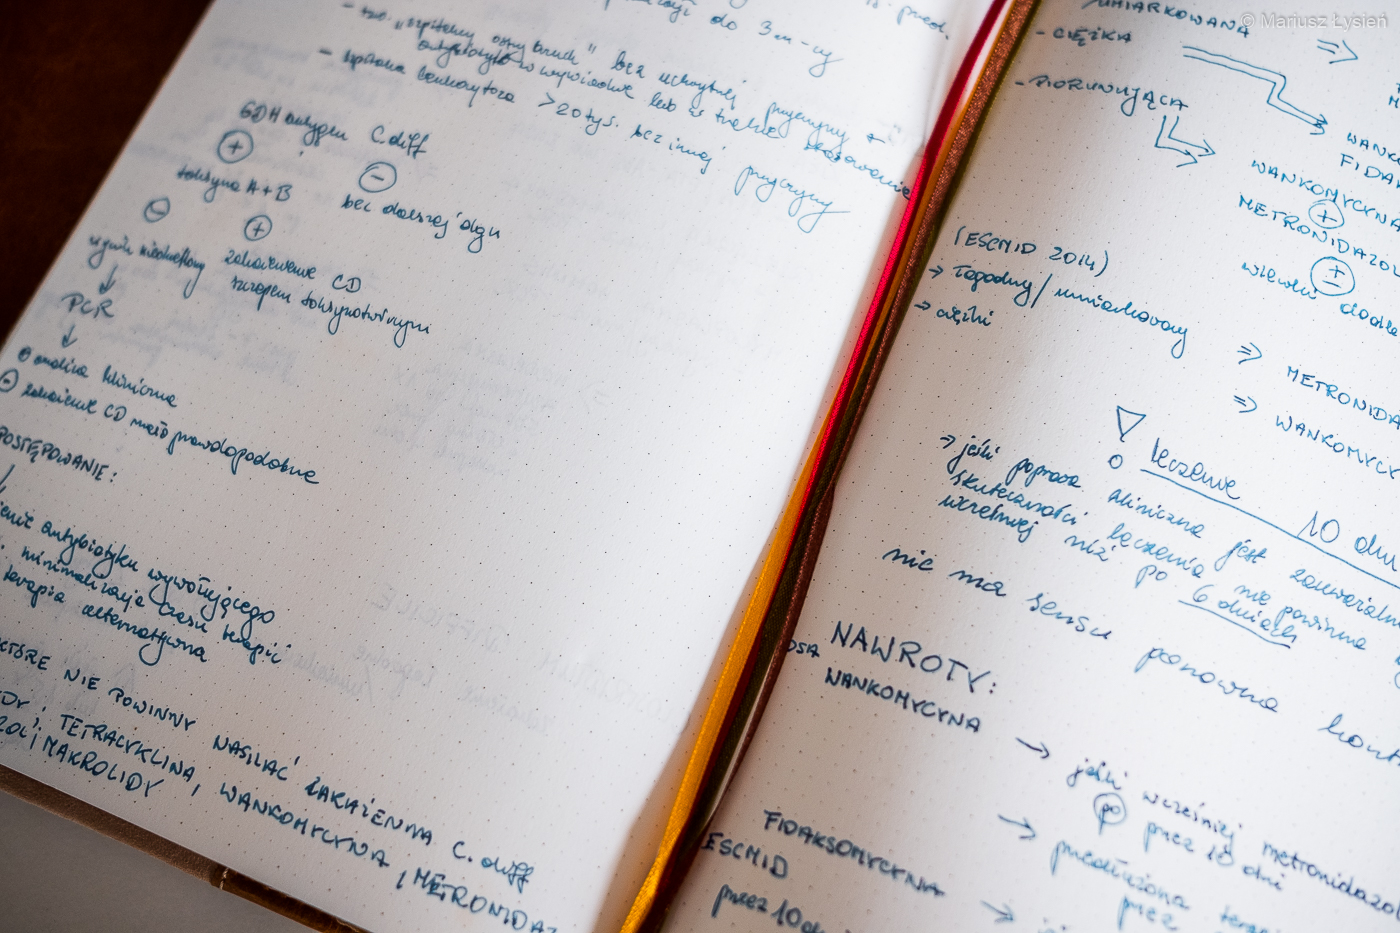 © Mariusz Łysień
do 3 m-cy
- tzw. „szpitalny ostry brzuch" bez uchwytnej przyczyny
antybiotyk w wywiadzie lub w trakcie stosowania
- wysoka leukocytoza >20 tys. bez innej przyczyny
GDH antygen C. diff
+ −
toksyna A+B bez dalszej diagn
− +
wynik niediagn zakażenie CD
szczepem toksynotwórczym
PCR
+ analiza kliniczna
− zakażenie CD mało prawdopodobne
POSTĘPOWANIE:
antybiotyku wywołującego
minimalizacja czasu terapii
terapia alternatywna
KTÓRE NIE POWINNY NASILAĆ ZAKAŻENIA C. diff
TETRACYKLINA, WANKOMYCYNA, METRONIDAZ
I MAKROLIDY
UMIARKOWANA ⇒
- CIĘŻKA
- PIORUNUJĄCA
WANKO
FIDA
WANKOMYCYNA
+
METRONIDAZOL
±
(ESCMID 2014)
→ łagodny/umiarkowany ⇒ METRONIDA
→ ciężki ⇒ WANKOMYC
leczenie 10 dni
→ jeśli poprawa kliniczna jest zauważalna
skuteczności leczenia nie powinna
wcześniej niż po 6 dniach
nie ma sensu ponowna kont
NAWROTY:
WANKOMYCYNA → jeśli wcześniej metronidazol
po przez 10 dni
→ przedłużona terap
przez
FIDAKSOMYCYNA →
ESCMID
przez 10 dni